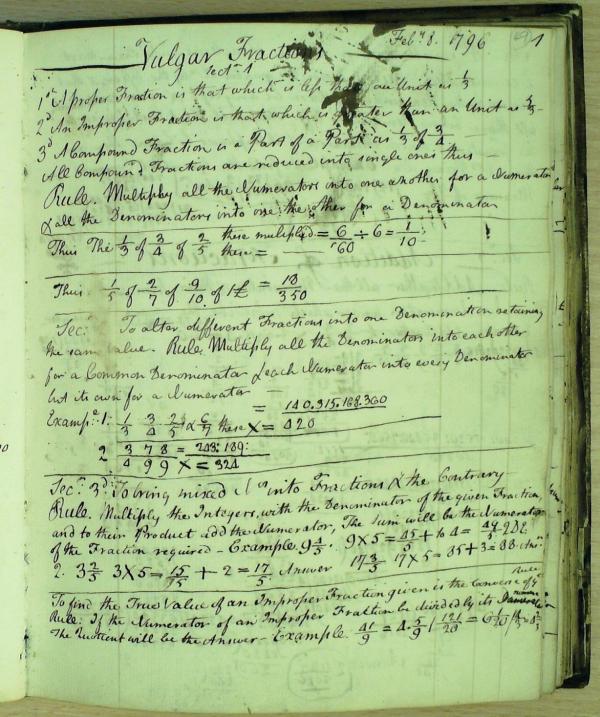 Feb.y 8. 1796 91
Vulgar Fractions
Sect. 1
1st A proper Fraction is that which is less than an Unit as 1/3
2d An Improper Fraction is that which is greater than an Unit as
3d A Compound Fraction is a Part of a Part as 1/3 of 3/4
All Compound Fractions are reduced into single ones thus
Rule. Multiply all the Numerators into one another for a Numerator
& all the Denominators into one the other for a Denominator
Thus The 1/3 of 3/4 of 2/5 these multiplied = 6/60 ÷ 6 = 1/10
these =
Thus 1/5 of 2/7 of 9/10 of 1£ = 18/350
Sec: To alter different Fractions into one Denomination retaining
the same value. Rule. Multiply all the Denominators into each other
for a Common Denominator & each Numerator into every Denominator
but its own for a Numerator
Examp.e 1. 1/3 3/4 2/5 & 6/7 these X = 140.315.168.360/420
2 3/4 7/9 8/9 X = 243:189:/324
Sec: 3d: To bring mixed Nos into Fractions & the Contrary
Rule. Multiply the Integers, with the Denominator of the given Fraction,
and to their Product add the Numerator, The Sum will be the Numerator
of the Fraction required - Example. 9 4/5. 9X5 = 45/5 + to 4 = 49/5
2. 3 2/5 3X5 = 15/5 + 2 = 17/5 Answer 17 3/5 17X5 = 85 + 3 = 88 Ans.
To find the True Value of an Improper Fraction given is the Converse of ye Rule
Rule: If the Numerator of an Improper Fraction be divided by its
The Quotient will be the Answer - Example. 41/9 = 4.5/9 / 121/20 = 6 1/20